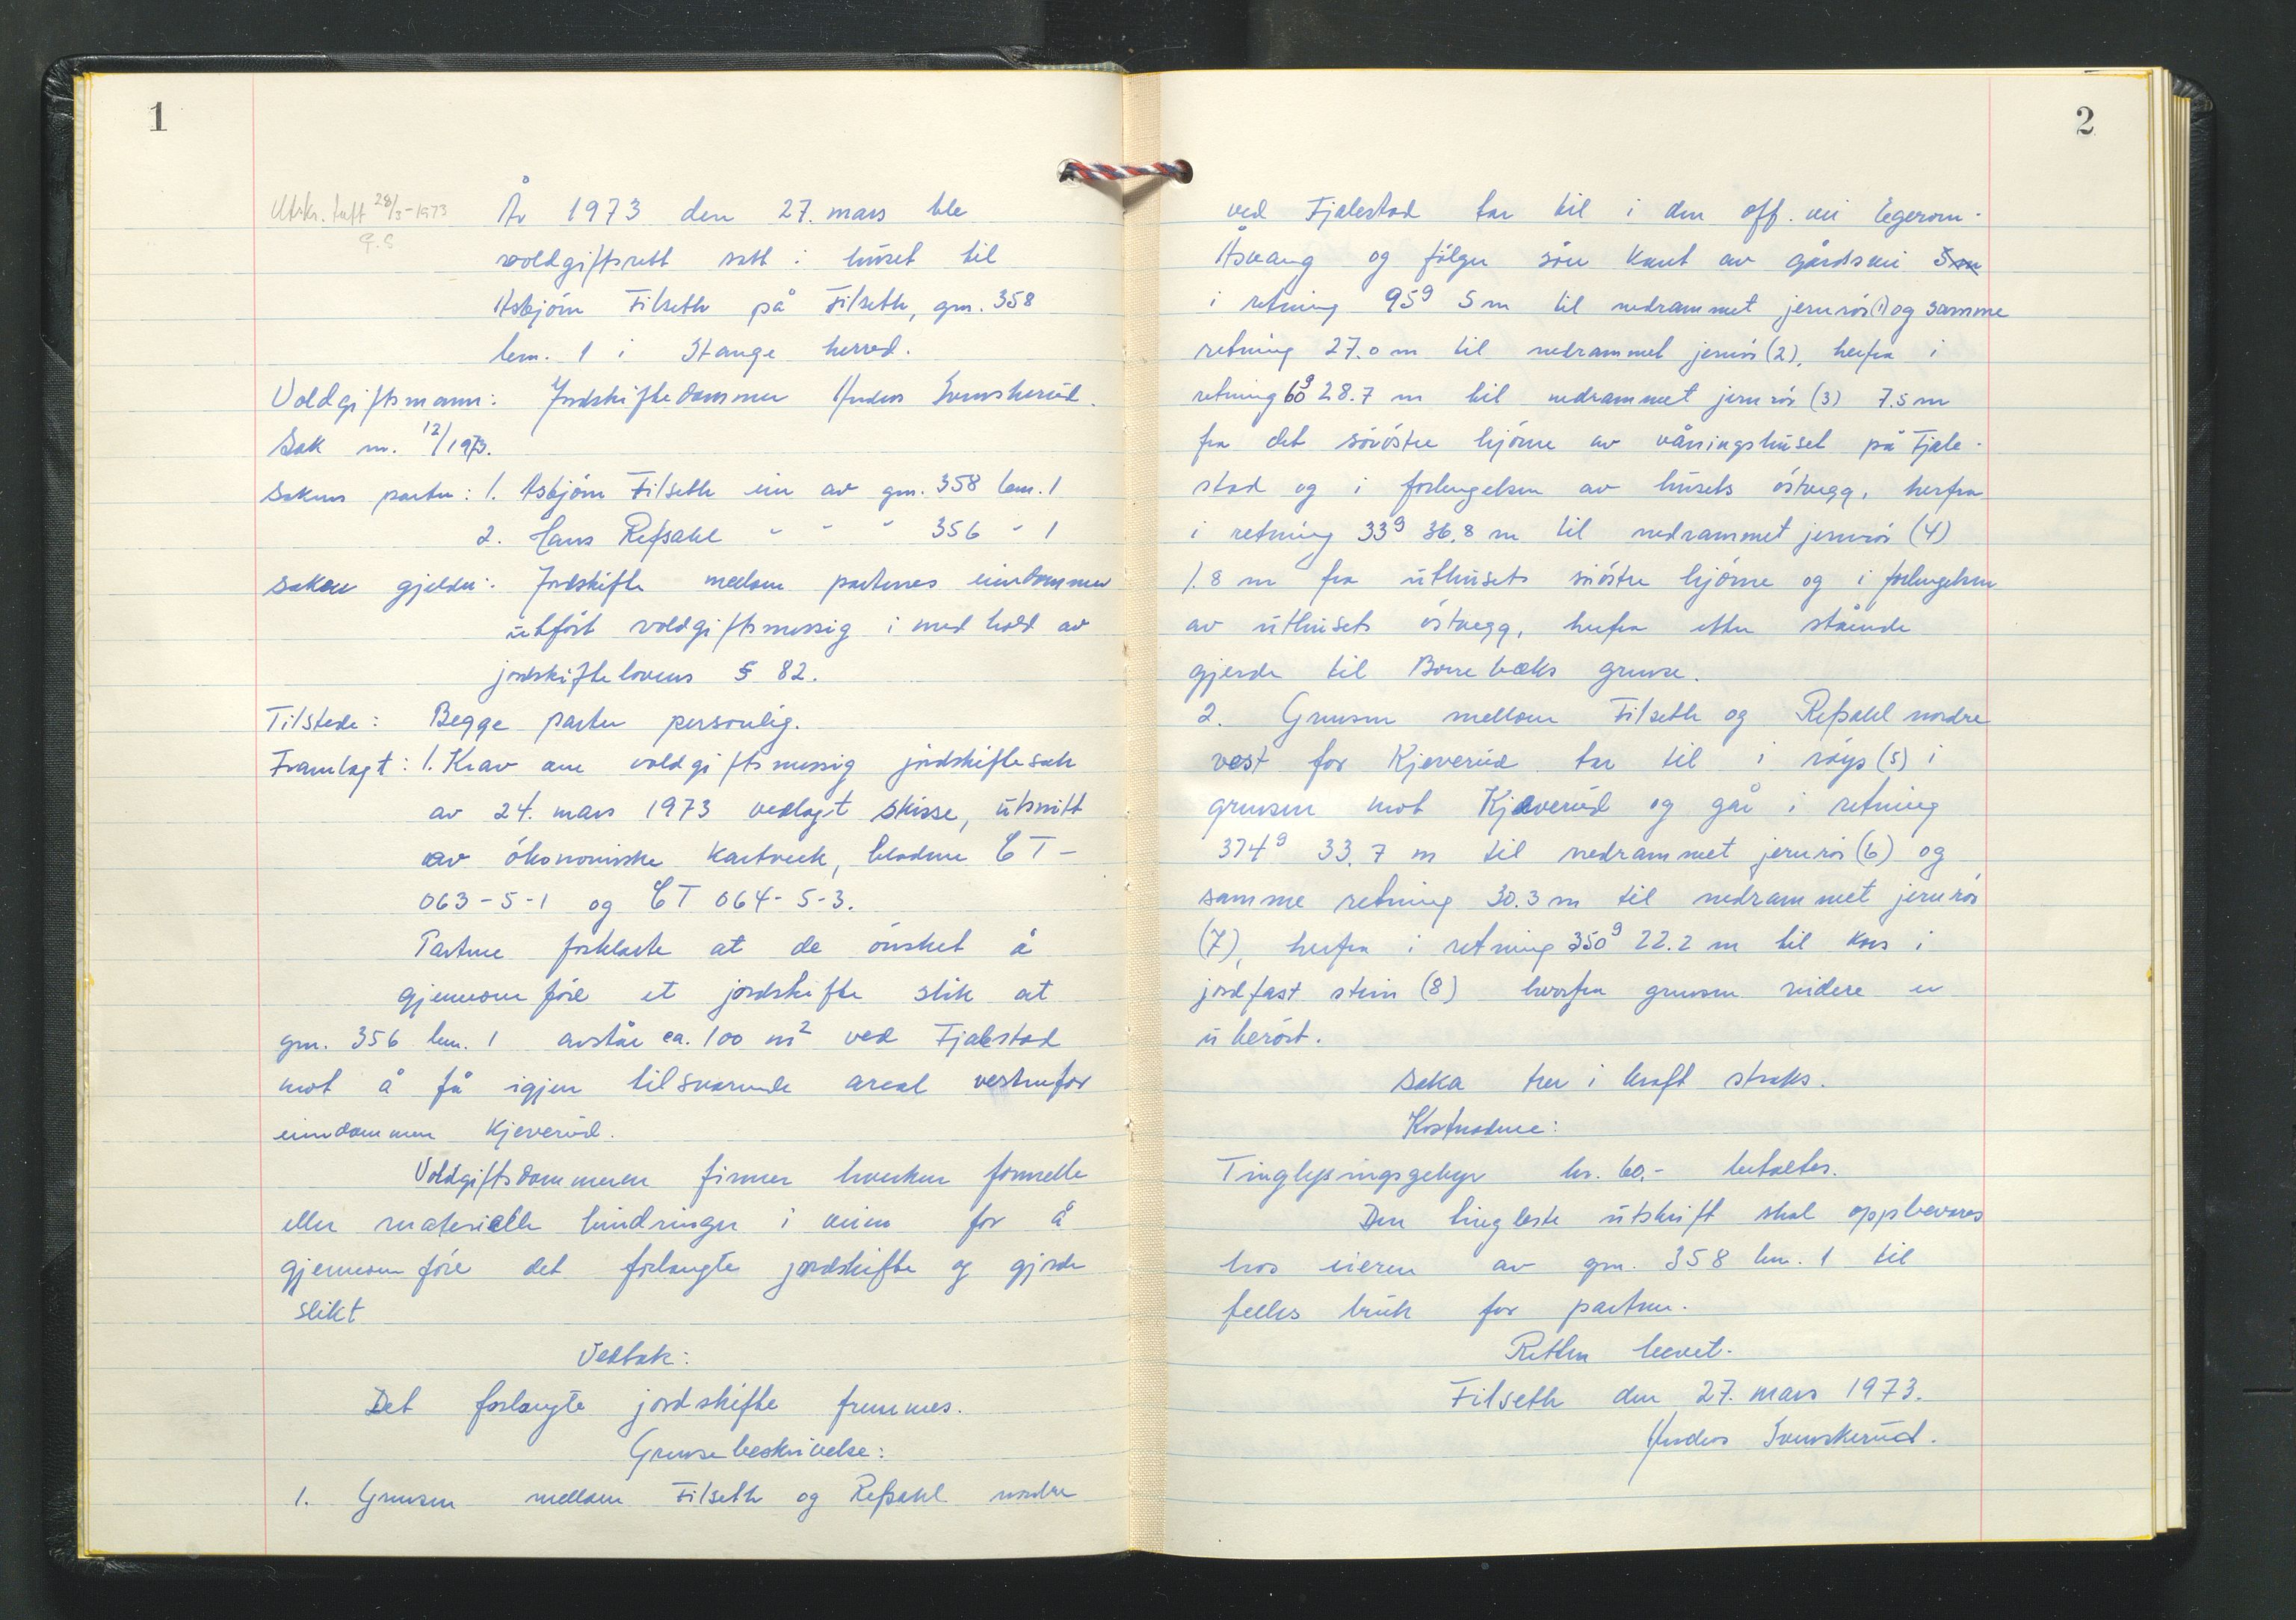 1
Utskr. tatt 28/3-1973
År 1973 den 27. mars ble
voldgiftsrett satt i huset til
Asbjörn Filseth på Filseth, gnr. 358
bnr. 1 i Stange herred.
Voldgiftsmann: Jordskiftedommer Anders Svenskerud.
Sak nr. 12/1973.
Sakens parter: 1. Asbjörn Filseth eier av gnr. 358 bnr. 1
2. Hans Refsahl " " " 356 " 1
Saken gjelder: Jordskifte mellom partenes eiendommer
utfört voldgiftsmessig i medhold av
jordskiftelovens § 82.
Tilstede: Begge parter personlig.
Framlagt: 1. Krav om voldgiftsmessig jordskiftesak
av 24. mars 1973 vedlagt skisse, utsnitt
av ökonomiske kartverk, bladene CT-
063-5-1 og CT 064-5-3.
Partene forklarte at de önsket å
gjennomföre et jordskifte slik at
gnr. 356 bnr. 1 avstår ca. 100 m² ved Fjælestad
mot å få igjen tilsvarende areal vestenfor
eiendommen Kjeverud.
Voldgiftsdommeren finner hverken formelle
eller materielle hindringer i veien for å
gjennomföre det forlangte jordskifte og gjorde
slikt
Vedtak:
Det forlangte jordskifte fremmes.
Grensebeskrivelse:
1. Grensen mellom Filseth og Refsahl nordre
2
ved Fjælestad tar til i den off. vei Egerom-
Åsvang og fölger söre kant av gårdsvei 5 m
i retning 95g 5 m til nedrammet jernrör (1) og samme
retning 27.0 m til nedrammet jernrör (2), herfra i
retning 60g 28.7 m til nedrammet jernrör (3) 7.5 m
fra det söröstre hjörne av våningshuset på Fjæle-
stad og i forlengelsen av husets östvegg, herfra
i retning 33g 36.8 m til nedrammet jernrör (4)
1.8 m fra uthusets söröstre hjörne og i forlengelsen
av uthusets östvegg, herfra etter stående
gjerde til Borrebæks grense.
2. Grensen mellom Filseth og Refsahl nordre
vest for Kjeverud tar til i röys (5) i
grensen mot Kjeverud og går i retning
374g 33.7 m til nedrammet jernrör (6) og
samme retning 30.3 m til nedrammet jernrör
(7), herfra i retning 350g 22.2 m til kors i
jordfast stein (8) hvorfra grensen videre er
uberört.
Saka trer i kraft straks.
Kostnadene:
Tinglysingsgebyr kr. 60,- betaltes.
Den tinglyste utskrift skal oppbevares
hos eieren av gnr. 358 bnr. 1 til
felles bruk for partene.
Retten hevet.
Filseth den 27. mars 1973.
Anders Svenskerud.